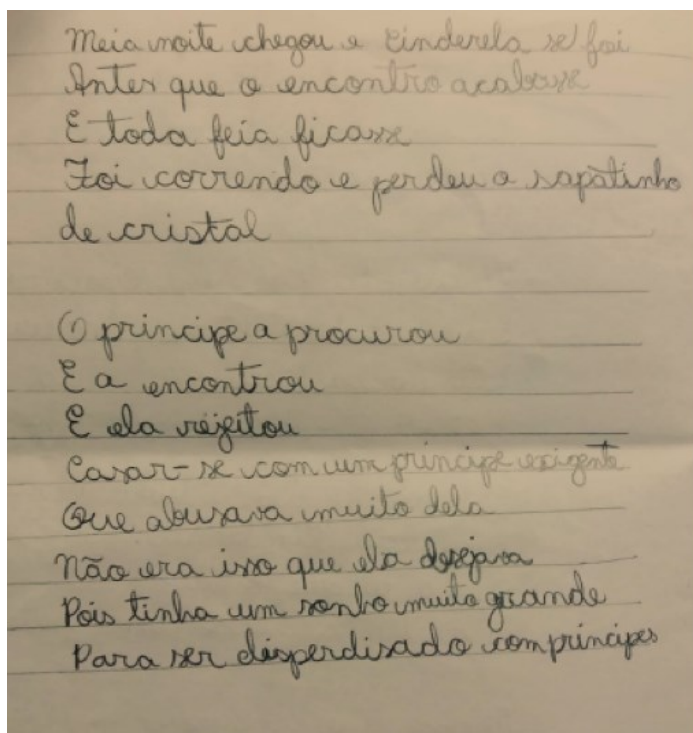 Meia noite chegou e Cinderela se foi
Antes que o encontro acabasse
E toda feia ficasse
Foi correndo e perdeu o sapatinho
de cristal
O principe a procurou
E a encontrou
E ela rejeitou
Casar-se com um principe exigente
Que abusava muito dela
Não era isso que ela desejava
Pois tinha um sonho muito grande
Para ser disperdisado com principes